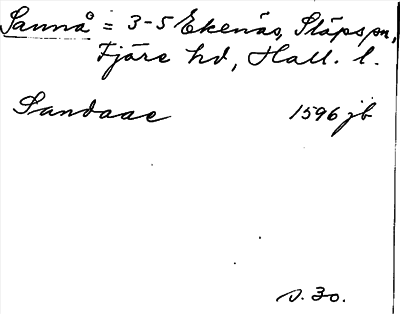 Sannå = 3-5 Ekenäs, Släps sn,
Fjäre hd, Hall. l.
Sandaae 1596 jb
s. 30.